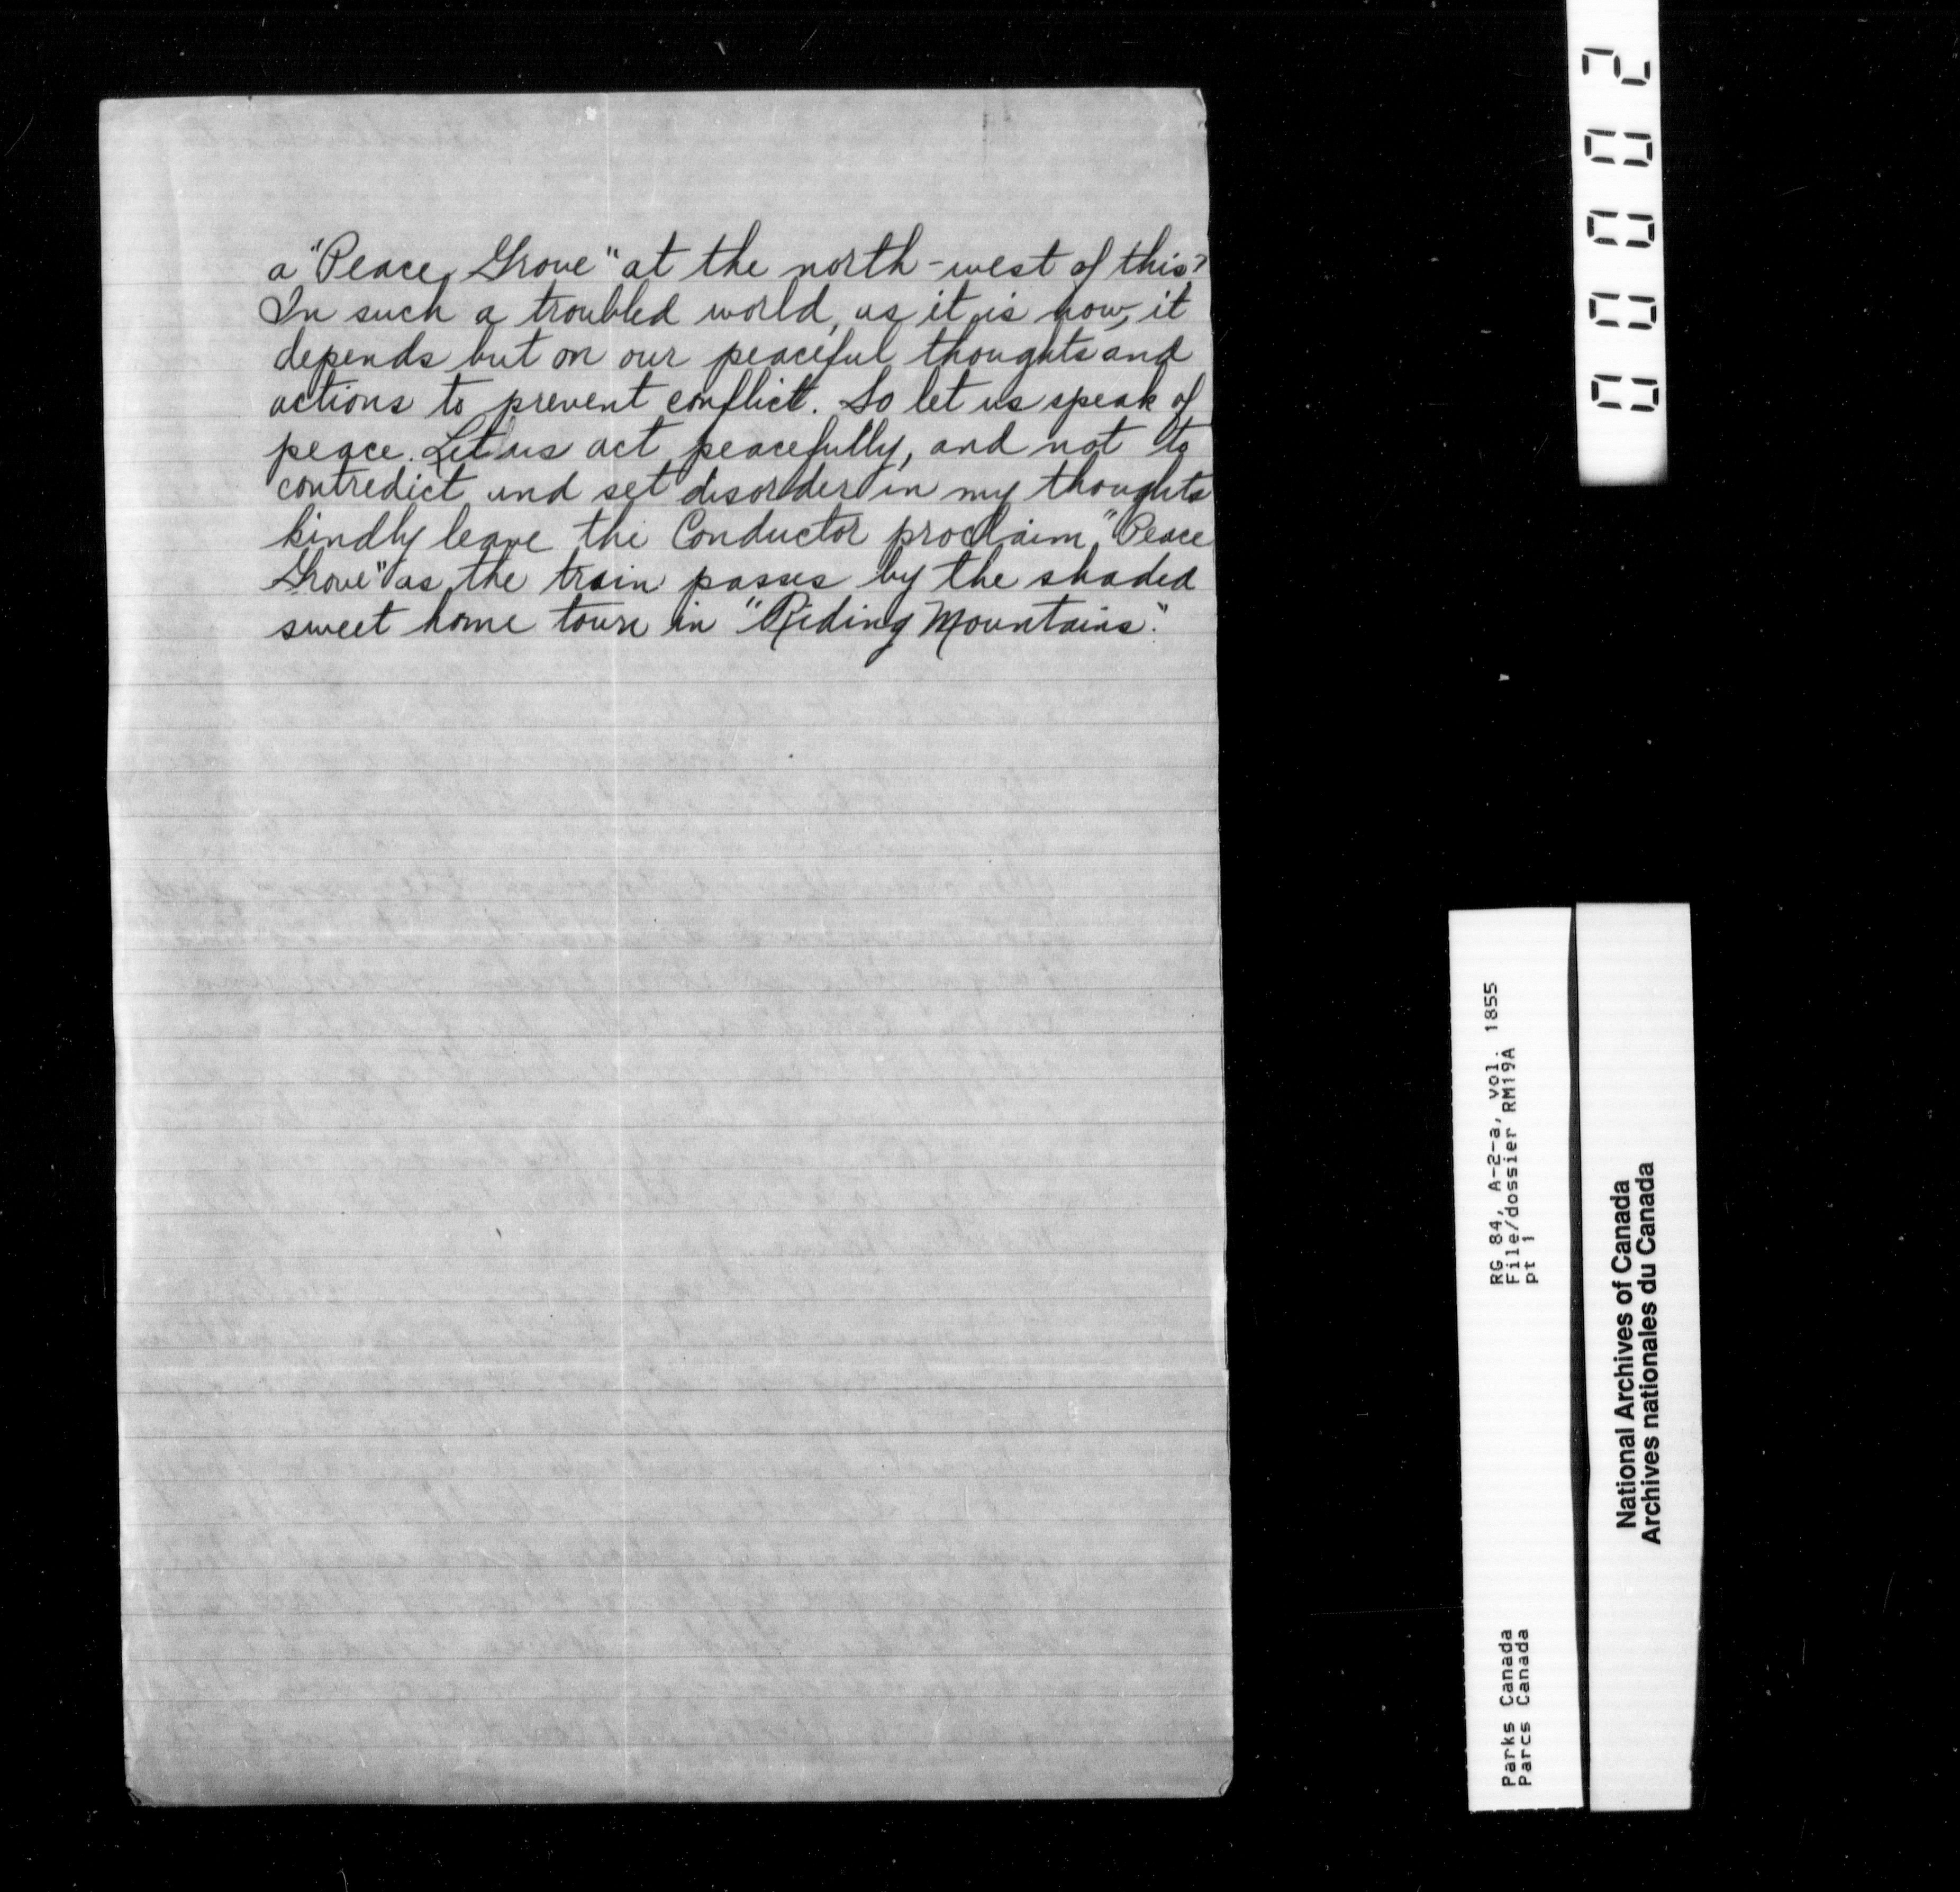 a "Peace Grove" at the north-west of this?
In such a troubled world, as it is now, it
depends but on our peaceful thoughts and
actions to prevent conflict. So let us speak of
peace. Let us act peacefully, and not to
contredict and set disorder in my thoughts
kindly leave the Conductor proclaim, "Peace
Grove" as the train passes by the shaded
sweet home town in "Riding Mountains."
00002
RG 84, A-2-a, vol. 1855
File/dossier RM19A
pt 1
Parks Canada
Parcs Canada
National Archives of Canada
Archives nationales du Canada